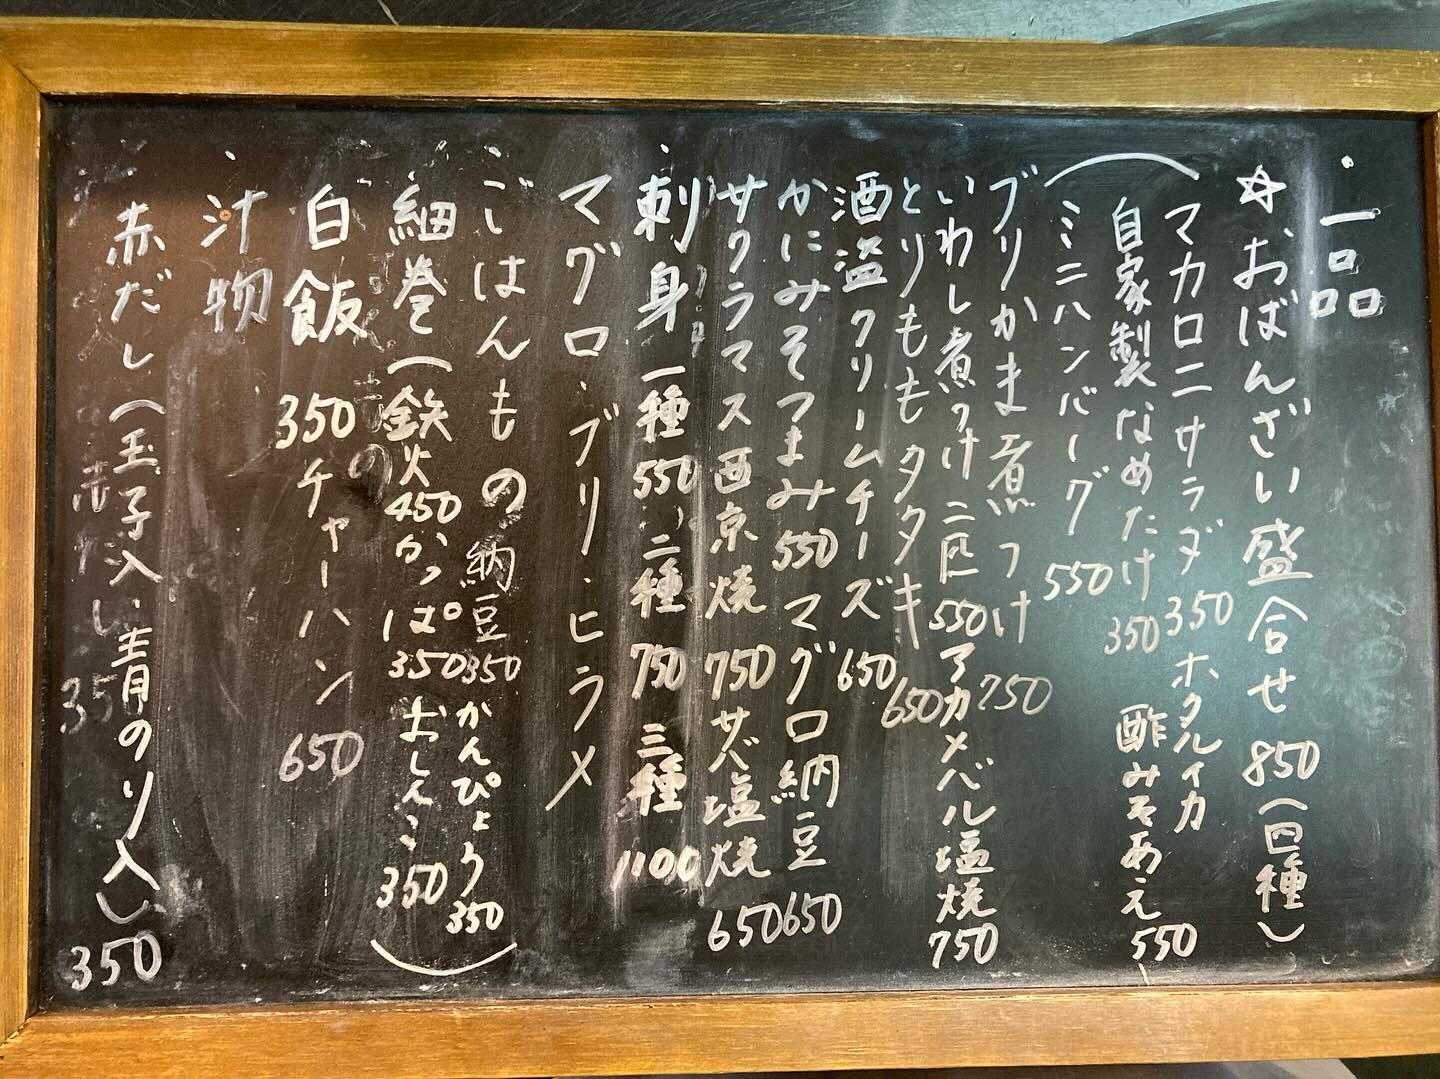 ・一品
☆おばんざい盛合せ 850(四種)
マカロニサラダ 350 ホタルイカ
自家製なめたけ 350 酢みそあえ 550
(ミニハンバーグ 550
ブリかま煮つけ 750
いわし煮つけ二匹 550 アカメバル塩焼 750
とりももタタキ 650
酒盗クリームチーズ 650
かにみそつまみ 550 マグロ納豆 650
サクラマス西京焼 750 サバ塩焼 650
・刺身 一種 550 二種 750 三種 1100
マグロ・ブリ・ヒラメ
・ごはんもの 納豆 350 かんぴょう 350
細巻(鉄火 450 かっぱ 350 おしんこ 350)
白飯 350 チャーハン 650
・汁物
赤だし(玉子入い青のり入い) 350